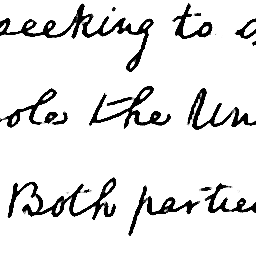 seeking to d
ole the Un
Both partie